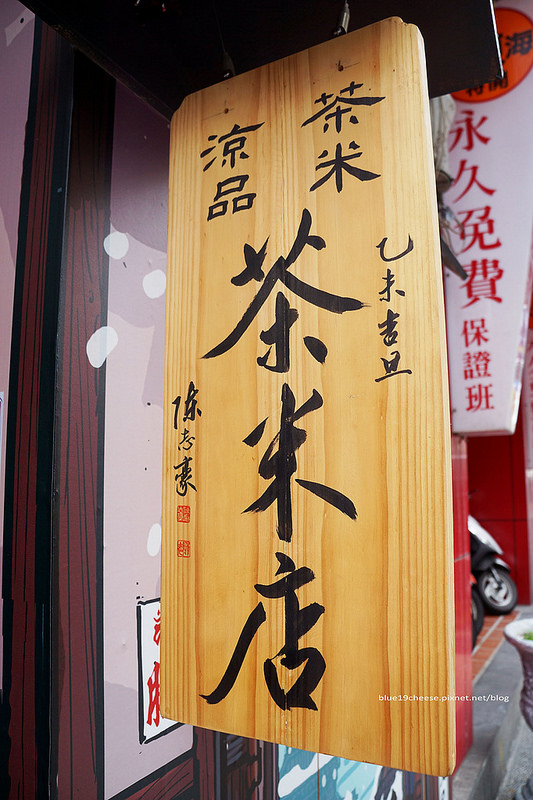 茶米
涼品
乙未吉旦
茶米店
陈志豪
海
永久免費
保證班
blue19cheese.pixnet.net/blog